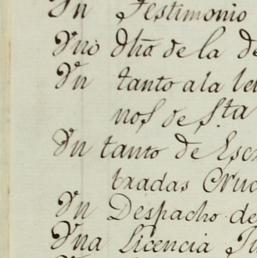 Un Testimonio
Uno dho de la de
Un tanto a la le
nos de Sta
Un tanto de Esc
tradas Cruc
Un Despacho de
Una Licencia